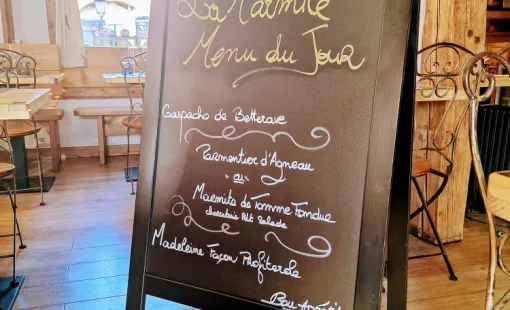 La Marmite
Menu du Jour
Gaspacho de Betterave
Parmentier d'Agneau
ou
Marmite de Tomme Fondue
Salade
Madeleine Façon Profiterole
Bon